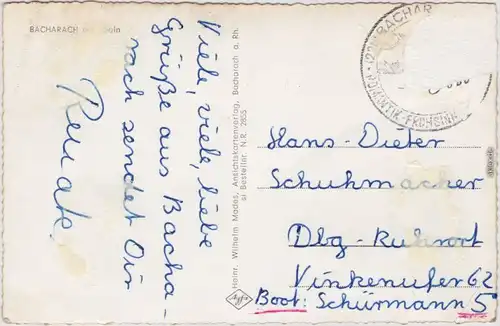 BACHARACH
Viele, viele, liebe
Grüße aus Bacha-
rach sendet Dir
Renate.
Heinr. Wilhelm Modes, Ansichtskartenverlag, Bacharach a. Rh.
Bestellnr. N.R. 2855
Agfa
BACHAR
ROMANTIK - FROHSINN
Hans-Dieter
Schuhmacher
Dbg-Ruhrort
Vinkenufer 62
Boot: Schürmann 5